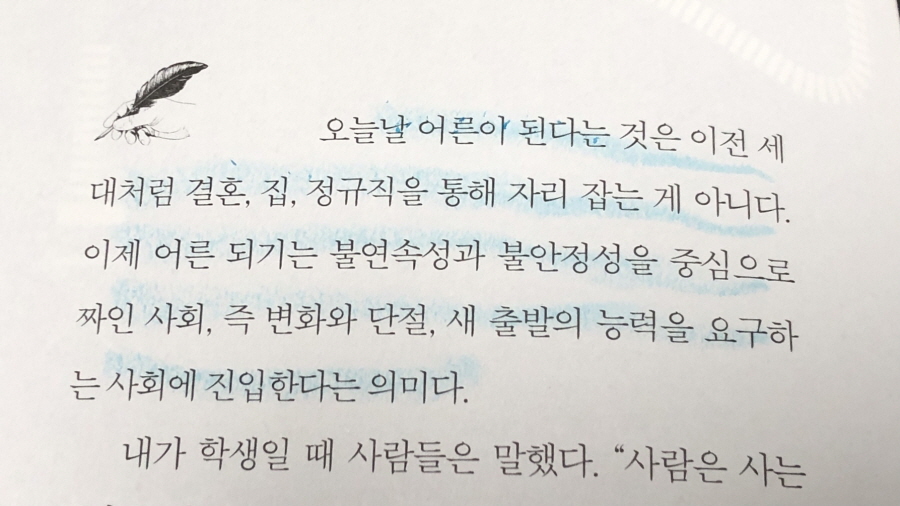 오늘날 어른이 된다는 것은 이전 세
대처럼 결혼, 집, 정규직을 통해 자리 잡는 게 아니다.
이제 어른 되기는 불연속성과 불안정성을 중심으로
짜인 사회, 즉 변화와 단절, 새 출발의 능력을 요구하
는 사회에 진입한다는 의미다.
내가 학생일 때 사람들은 말했다. “사람은 사는